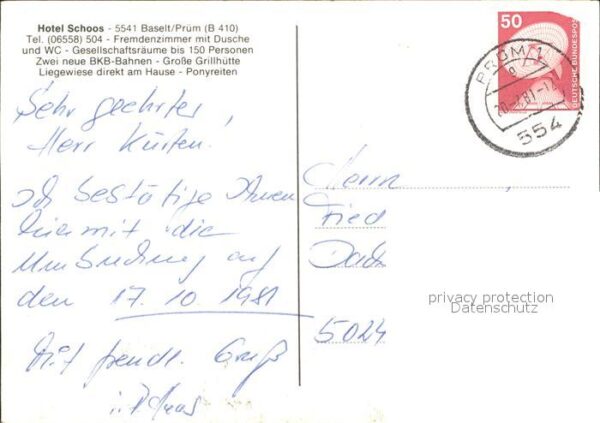 Hotel Schoos - 5541 Baselt/Prüm (B 410)
Tel. (06558) 504 - Fremdenzimmer mit Dusche
und WC - Gesellschaftsräume bis 150 Personen
Zwei neue BKB-Bahnen - Große Grillhütte
Liegewiese direkt am Hause - Ponyreiten
Sehr geehrter,
Herr Kürten.
Ich bestätige Ihnen
hiermit die
Umbuchung auf
den 17.10 1981
Mit freundl. Gruß
50
DEUTSCHE BUNDESPOST
PRÜM 1
554
Herrn
Fried
5024
privacy protection
Datenschutz